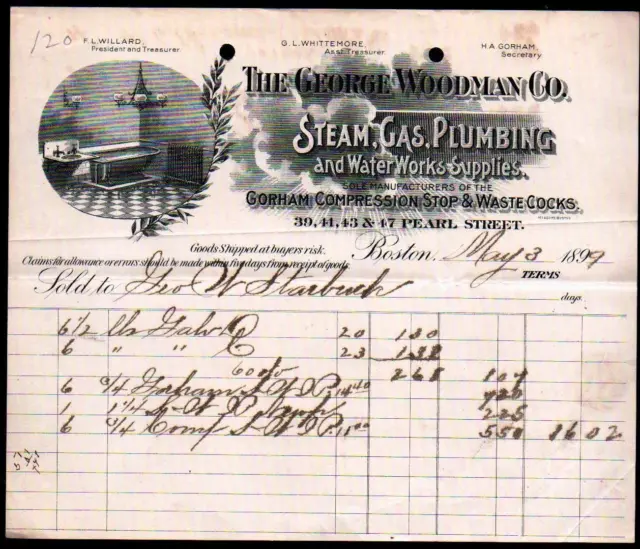 120
F.L. WILLARD,
President and Treasurer.
G.L. WHITTEMORE,
Ass't Treasurer.
H.A. GORHAM,
Secretary
THE GEORGE WOODMAN CO.
STEAM, GAS, PLUMBING
and Water Works Supplies.
SOLE MANUFACTURERS OF THE
GORHAM COMPRESSION STOP & WASTE COCKS.
39, 41, 43 & 47 PEARL STREET.
Goods Shipped at buyers risk.
Claims for allowance or errors should be made within five days from receipt of goods.
Boston, May 3 1899
TERMS
Sold to Geo W Starbuck
days.
6 1/2 lbs Galv 20 130
6 " " 23 138
60% 268 107
6 3/4 Gorham S W I P. 14 40 720
1 1 1/4 225
6 3/4 Comp S W I P. 11 00 550 16 02